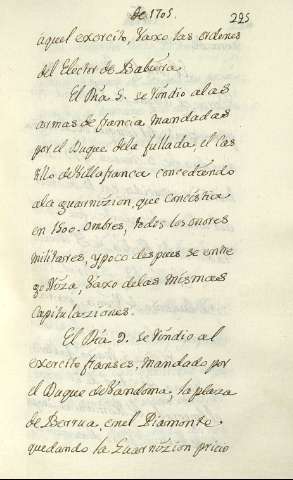 de 1705.
295
aquel exercito, vaxo las ordenes
del Elector de Babiera.
El Dia 5. se Rindio a las
armas de francia mandadas
por el Duque de la fullada, el Cas
tillo de Villafranca concediendo
a la guarnizion, que concistia
en 1500. ombres, todos los onores
militares, y poco despues se entre
go Niza, vaxo de las mismas
Capitulaziones.
El Dia 9. se Rindio al
exercito franses, mandado por
el Duque de Vandoma, la plaza
de Berrua, en el Piamonte.
quedando la Guarnizion pricio